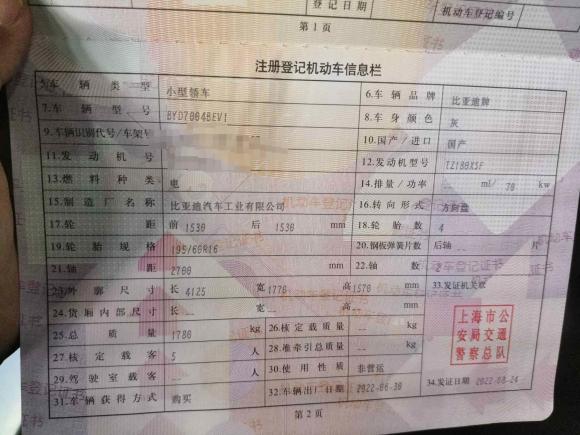 登记日期 机动车登记编号
第1页
注册登记机动车信息栏
5.车辆类型 小型轿车 6.车辆品牌 比亚迪牌
7.车辆型号 BYD7004BEV1 8.车身颜色 灰
9.车辆识别代号/车架号 10.国产/进口 国产
11.发动机号 12.发动机型号 TZ180XSF
13.燃料种类 电 14.排量/功率 -- ml/ 70 kw
15.制造厂名称 比亚迪汽车工业有限公司 16.转向形式 方向盘
17.轮距 前 1530 后 1530 mm 18.轮胎数 4
19.轮胎规格 195/60R16 20.钢板弹簧片数 后轴 -- 片
21.轴距 2700 mm 22.轴数 2
23.外廓尺寸 长 4125 宽 1770 高 1570 mm 33.发证机关章
24.货厢内部尺寸 长 -- 宽 -- 高 -- mm
25.总质量 1780 kg 26.核定载质量 -- kg
27.核定载客 5 人 28.准牵引总质量 -- kg
29.驾驶室载客 -- 人 30.使用性质 非营运
31.车辆获得方式 购买 32.车辆出厂日期 2022-06-30 34.发证日期 2022-08-24
上海市公
安局交通
警察总队
第2页